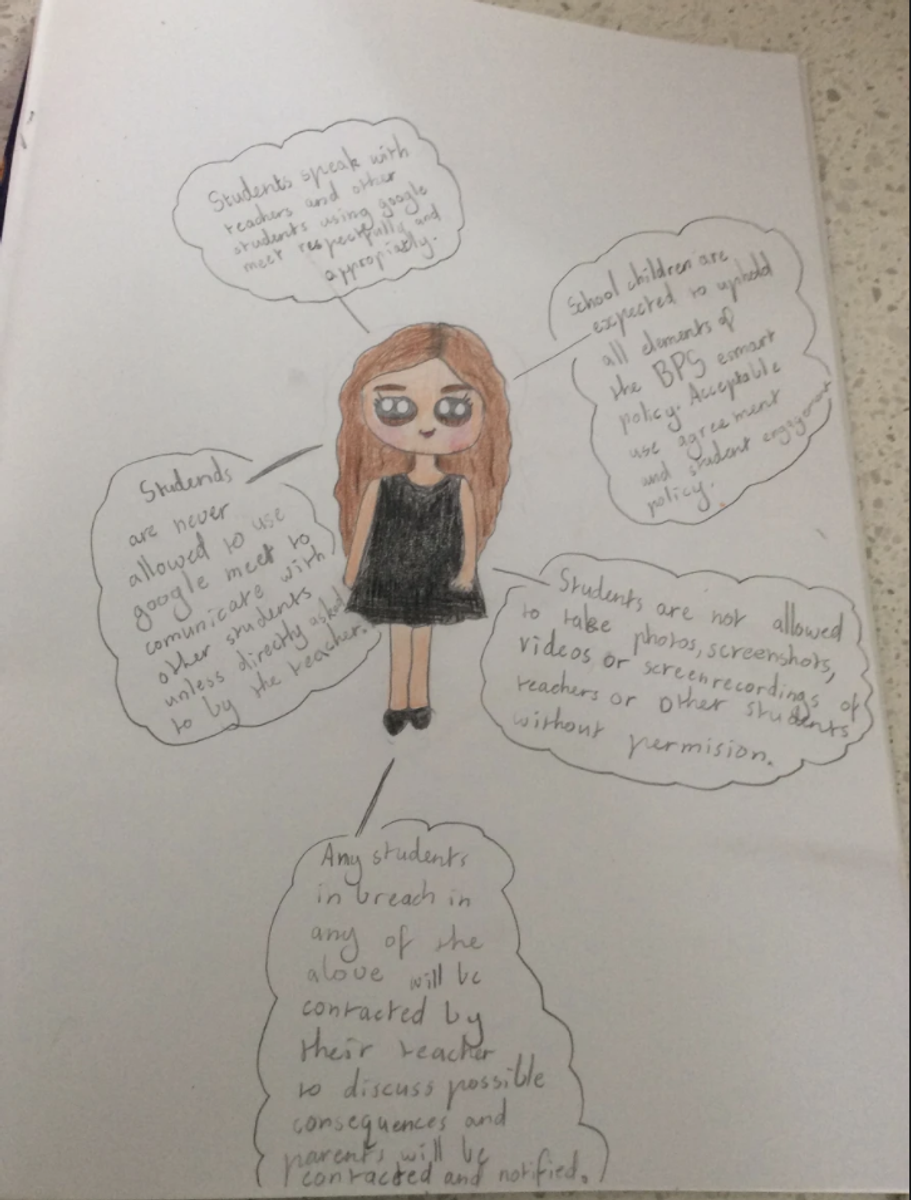 Students speak with
teachers and other
students using google
meet respectfully and
appropiatly.
School children are
expected to uphold
all elements of
the BPS esmart
policy. Acceptable
use agreement
and student engagement
policy.
Students
are never
allowed to use
google meet to
comunicate with
other students
unless directly asked
to by the teacher.
Students are not allowed
to take photos, screenshots,
videos or screenrecordings of
teachers or other students
without permision.
Any students
in breach in
any of the
above will be
contacted by
their teacher
to discuss possible
consequences and
parents will be
contacted and notified.